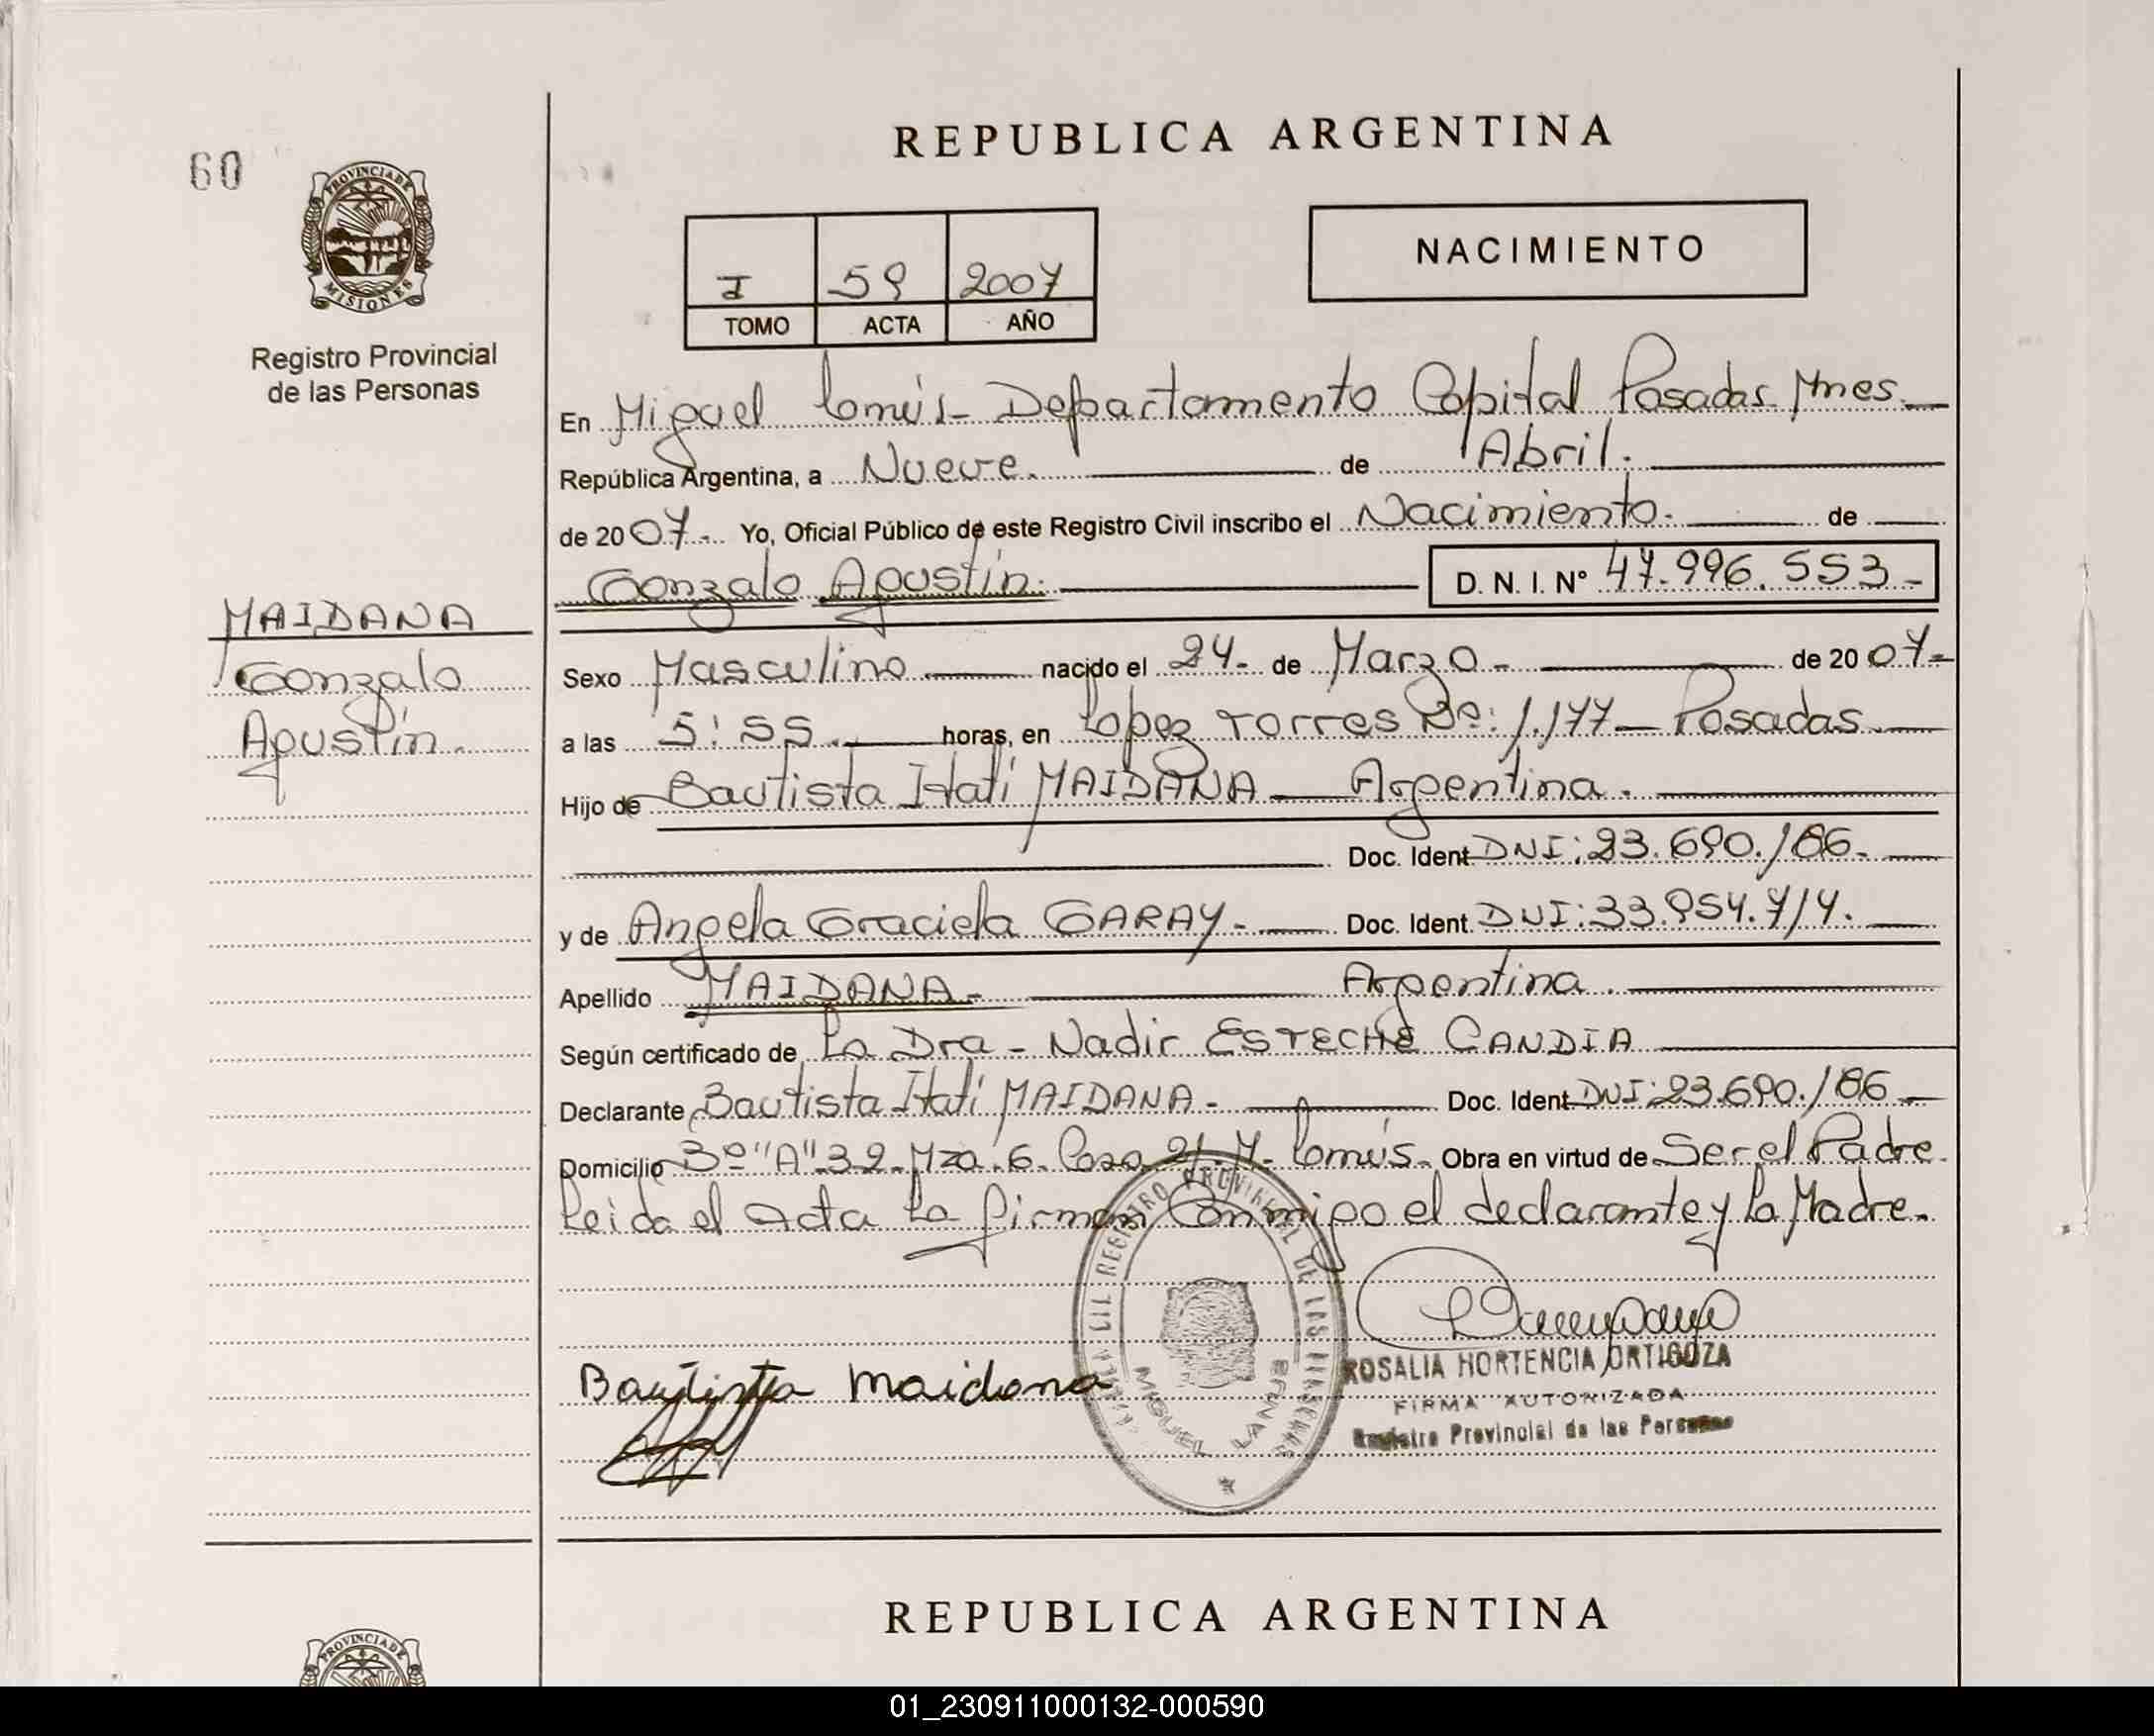 REPUBLICA ARGENTINA
60
PROVINCIA DE MISIONES
Registro Provincial
de las Personas
I 59 2007
TOMO ACTA AÑO
NACIMIENTO
En Miguel Lanús - Departamento Capital Posadas Mnes.
República Argentina, a Nueve. de Abril.
de 2007.- Yo, Oficial Público de este Registro Civil inscribo el Nacimiento. de
Gonzalo Agustín. D. N. I. Nº 47.996.553.-
MAIDANA
Gonzalo
Agustín.
Sexo Masculino nacido el 24. de Marzo - de 2007-
a las 5:55. horas, en Lopez Torres Nº: 1.177 - Posadas.
Hijo de Bautista Itatí MAIDANA - Argentina.
Doc. Ident. DNI: 23.690.186.
y de Angela Graciela GARAY. - Doc. Ident. DNI: 33.954.714.
Apellido MAIDANA - Argentina.
Según certificado de La Dra - Nadir ESTECHE CANDIA
Declarante Bautista Itatí MAIDANA - Doc. Ident. DNI: 23.690.186
Domicilio Bº "A" 32. Mza. 6. Casa 21. M. Lanús. Obra en virtud de Ser el Padre.
Leida el acta la firman Conmigo el declarante y la Madre.
REGISTRO PROVINCIAL DE LAS PERSONAS
MIGUEL LANUS
Bautista Maidana
ROSALIA HORTENCIA ORTIGOZA
FIRMA AUTORIZADA
Registro Provincial de las Personas
REPUBLICA ARGENTINA
PROVINCIA DE
01_230911000132-000590